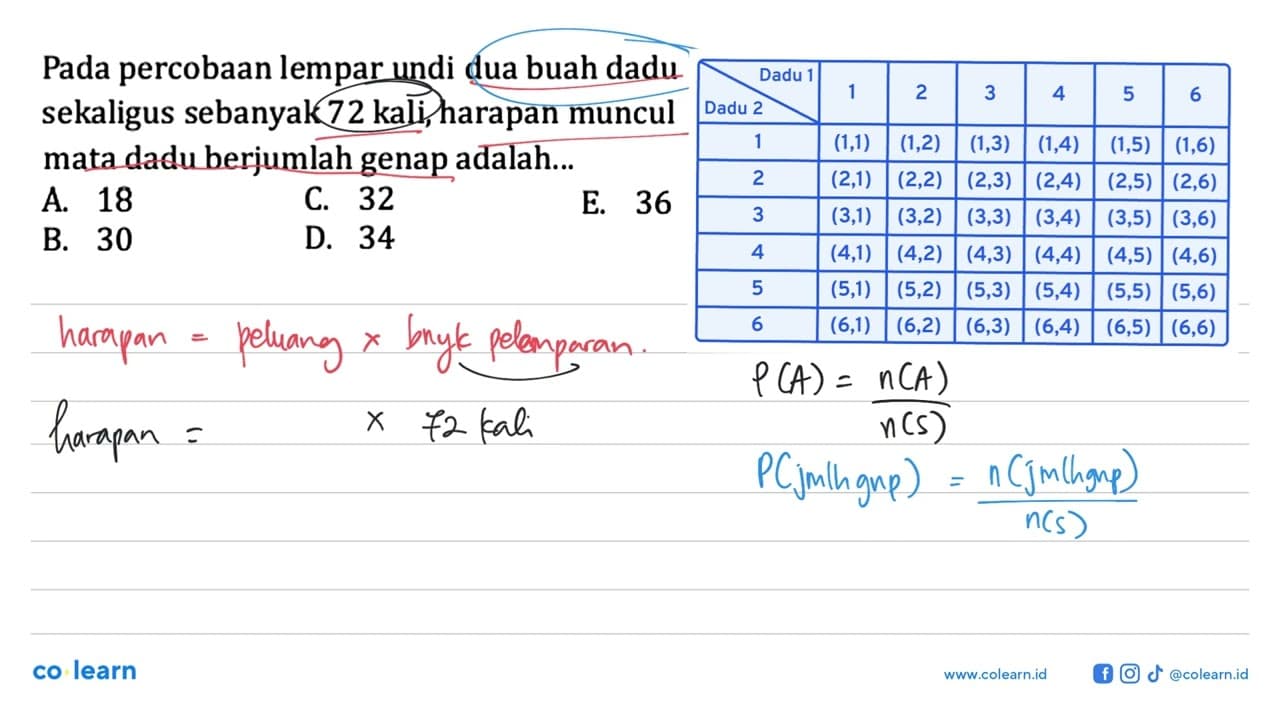 Pada percobaan lempar undi dua buah dadu
sekaligus sebanyak 72 kali, harapan muncul
mata dadu berjumlah genap adalah...
A. 18 C. 32 E. 36
B. 30 D. 34
Dadu 1 1 2 3 4 5 6
Dadu 2
1 (1,1) (1,2) (1,3) (1,4) (1,5) (1,6)
2 (2,1) (2,2) (2,3) (2,4) (2,5) (2,6)
3 (3,1) (3,2) (3,3) (3,4) (3,5) (3,6)
4 (4,1) (4,2) (4,3) (4,4) (4,5) (4,6)
5 (5,1) (5,2) (5,3) (5,4) (5,5) (5,6)
6 (6,1) (6,2) (6,3) (6,4) (6,5) (6,6)
harapan = peluang x bnyk pelemparan.
harapan = x 72 kali
P(A) = n(A)
n(S)
P(jmlh gnp) = n(jmlh gnp)
n(s)
co learn
www.colearn.id @colearn.id